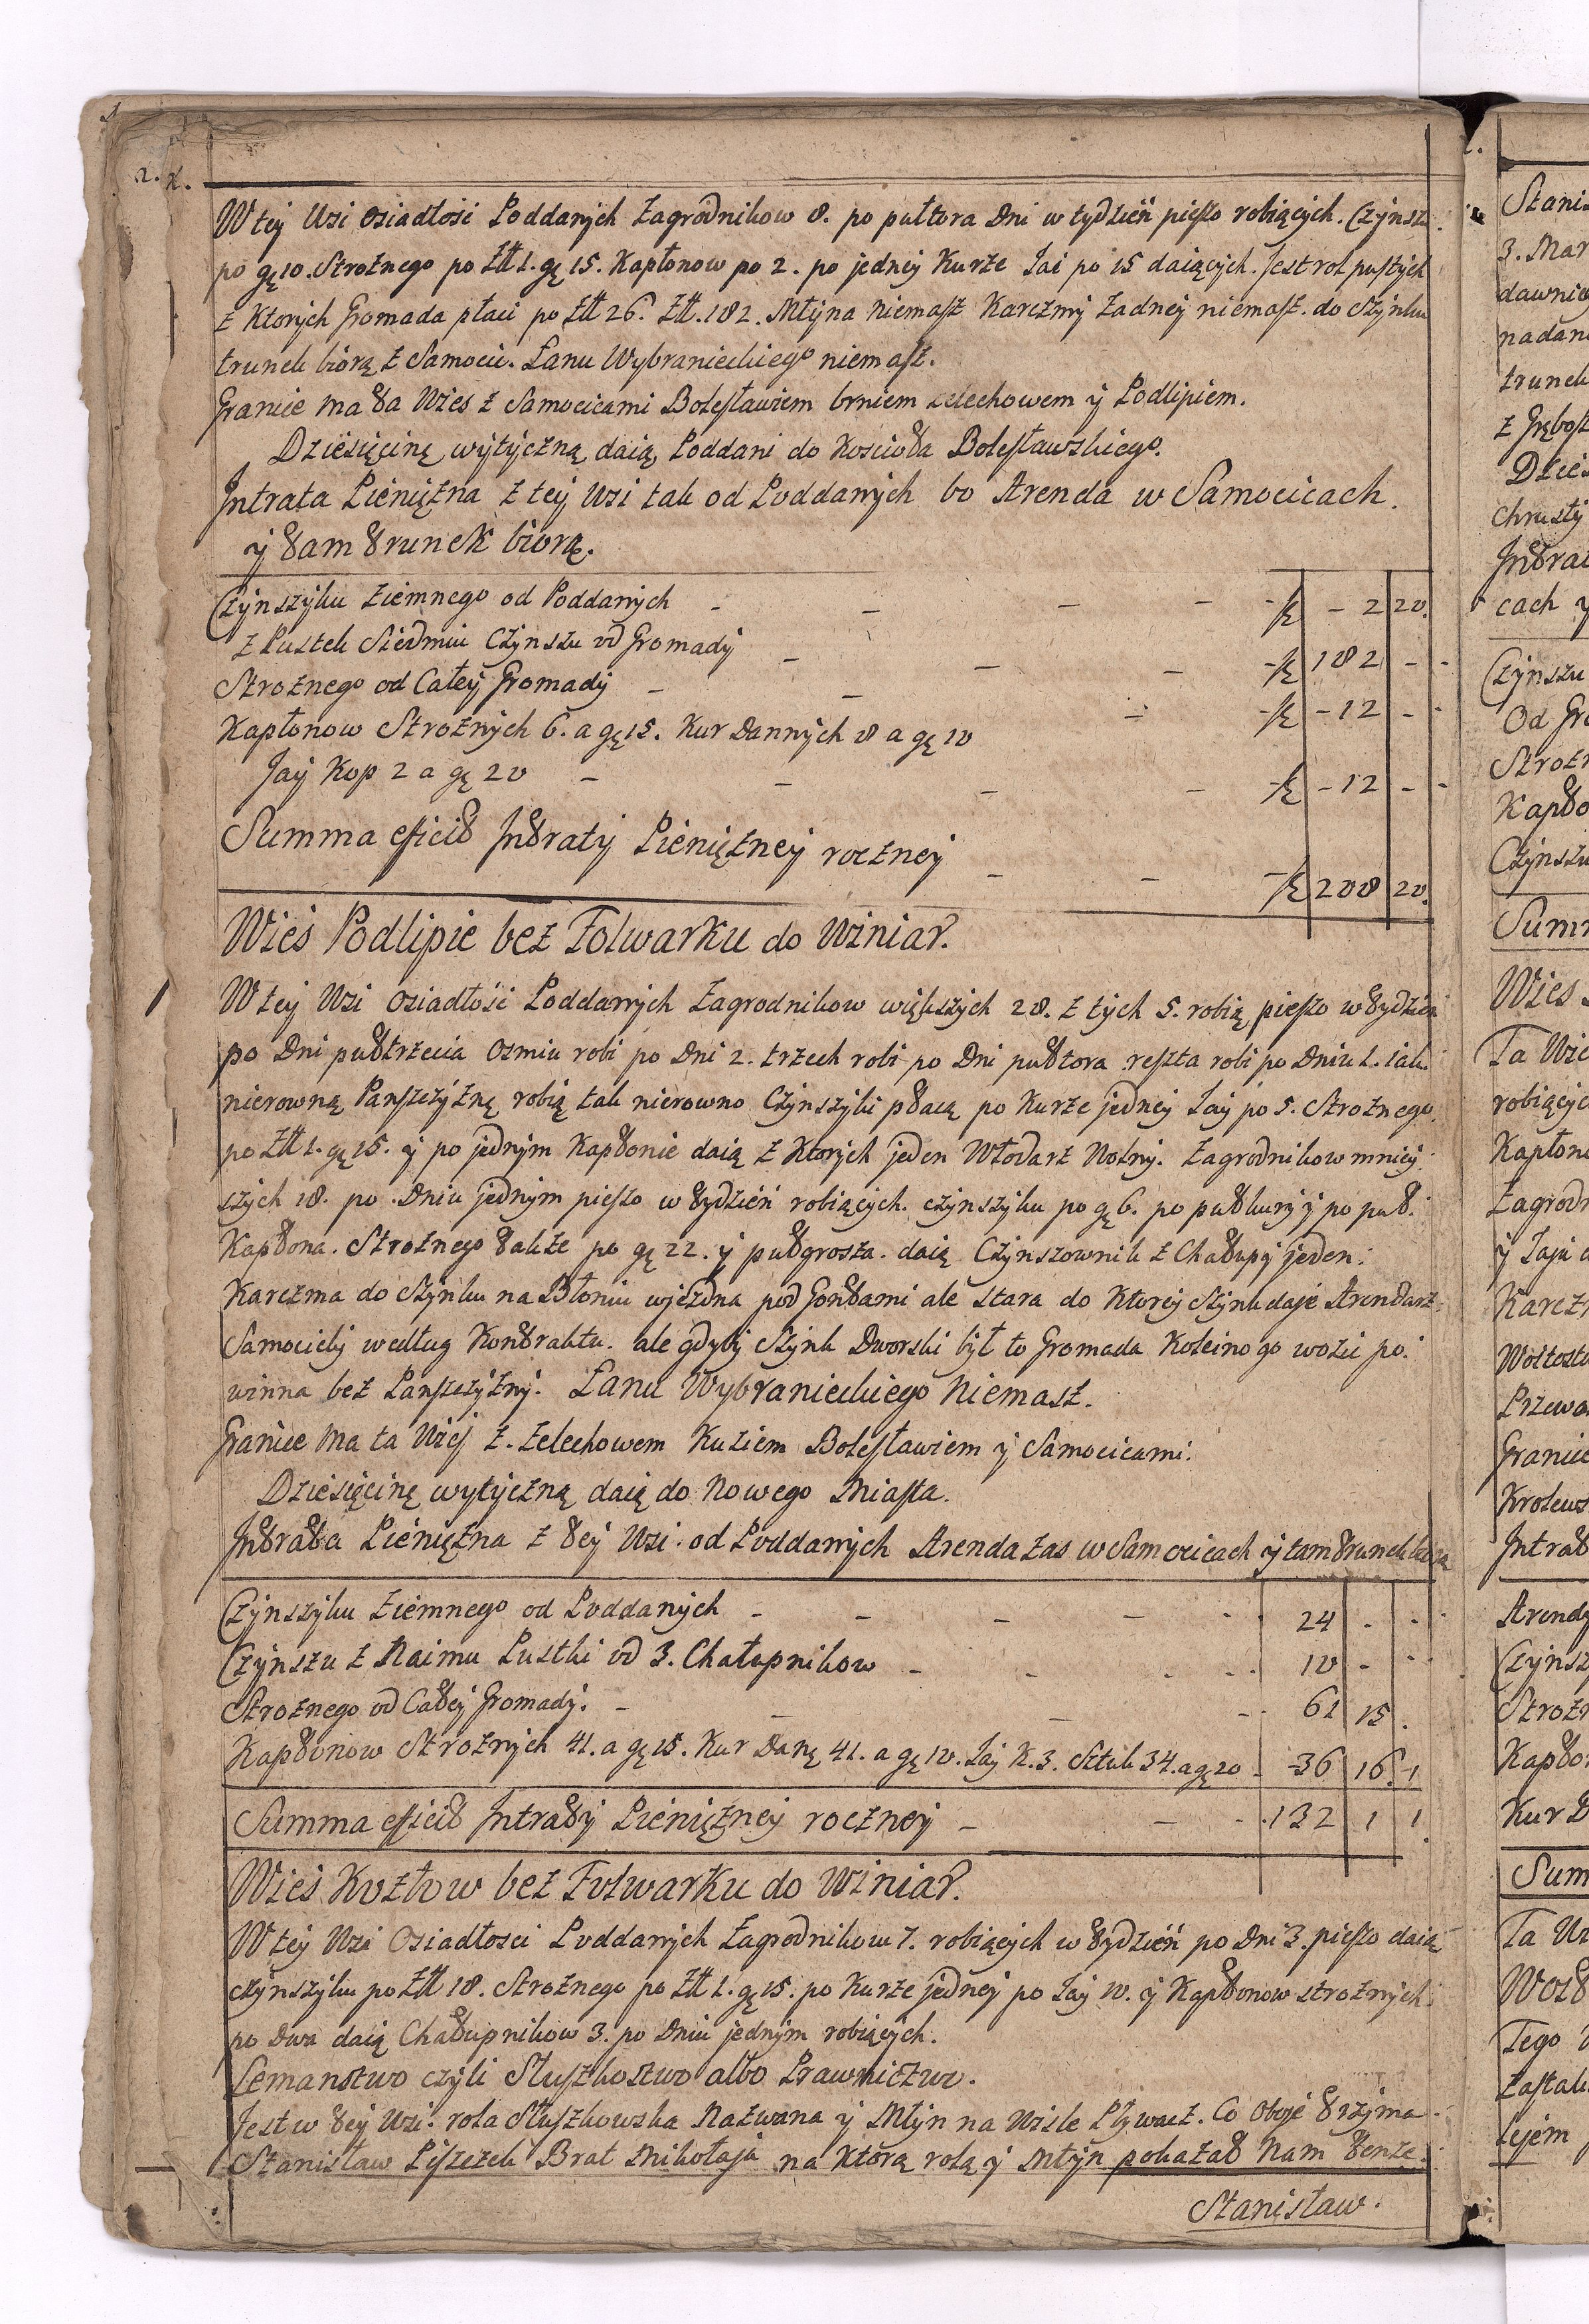 2. K.
W tej Wsi osiadłości Poddanych Zagrodnikow 8. po pułtora Dni w tydzień pieszo robiących. Czynsz
po gę 10. Stroznego po Złł 1. gę 15. Kapłonow po 2. po jedney Kurze Jai po 15 daiących. Jest rol pustych
z Ktorych Gromada płaci po Złł 26. Złł. 182. Młyna niemasz Karczmy Zadney niemasz. do Szynku
trunek biorą z Samocic. Łanu Wybranieckiego niemasz.
Granice ma ta Wies z Samocicami Bolesławiem brniem Zelechowem y Podlipiem.
Dziesięcinę wytyczną daią Poddani do Koscioła Bolesławskiego.
Intrata Pieniężna z tej Wsi tak od Poddanych bo Arenda w Samocicach.
y tam trunek biorą.
Czynszyku Ziemnego od Poddanych - - - - - 2 20.
z Pustek Siedmiu Czynszu od Gromady - - - 182 - -
Stroznego od Całey Gromady - - - - 12 - -
Kapłonow Stroznych 6. a gę 15. Kur Dannych 8 a gę 10
Jaj Kop 2 a gę 20 - - - - - 12 - -
Summa efficit Intraty Pieniężney roczney - - 208 20.
Wieś Podlipie bez Folwarku do Winiar.
W tej Wsi osiadłości Poddanych Zagrodnikow większych 28. z tych 5. robią pieszo w tydzień
po Dni pułtrzecia Osmiu robi po Dni 2. trzech robi po Dni pułtora reszta robi po Dniu 1. iak
nierowną Panszczyznę robią tak nierowno Czynszyki płacą po Kurze jedney Jaj po 5. Stroznego
po Złł 1. gę 15. y po jednym Kapłonie daią z Ktorych jeden Włodarz Wolny. Zagrodnikow mniey
szych 18. po Dniu jednym pieszo w tydzień robiących. czynszyku po gę 6. po puł kury y po puł
Kapłona. Stroznego także po gę 22. y pułgrosza. daią Czynszownik z Chałupy jeden:
Karczma do Szynku na Błoniu wjezdna pod Gontami ale stara do Ktorey Szynk daje Arendarz
Samocicki według Kontraktu. ale gdyby Szynk Dworski był to Gromada Koleino go wozić po.
winna bez Panszczyzny. Łanu Wybranieckiego Niemasz.
Granice ma ta Wieś z. Zelechowem Kuziem Bolesławiem y Samocicami.
Dziesięcinę wytyczną daią do Nowego Miasta.
Intrata Pieniężna z tej Wsi od Poddanych Arenda zas w Samocicach y tam trunek biorą
Czynszyku Ziemnego od Poddanych - - - - - 24 - -
Czynszu z Naimu Pustki od 3. Chałupnikow - - - - 10 - -
Stroznego od Całey Gromady. - - - - 61 15.
Kapłonow Stroznych 41. a gę 15. Kur Danę 41. a gę 10. Jaj K. 3. Sztuk 34. a gę 20 - 36 16. 1
Summa efficit Intraty Pieniężney roczney - - - 132 1 1.
Wieś Kozłow bez Folwarku do Winiar.
W tej Wsi Osiadłości Poddanych Zagrodnikow 7. robiących w tydzień po Dni 3. pieszo daią
czynszyku po Złł 18. Stroznego po Złł 1. gę 15. po Kurze jedney po Jaj 10. y Kapłonow stroznych
po Dwa daią Chałupnikow 3. po Dniu jednym robiących.
Lemanstwo czyli Słuszkostwo albo Prawnictwo.
Jest w tej Wsi rola Słuszkowska Nazwana y Młyn na Wisle Pływacz. Co oboje trzyma
Stanisław Piszczek Brat Mikołaja na Ktorą rolą y Młyn pokazał Nam tenże
Stanisław.